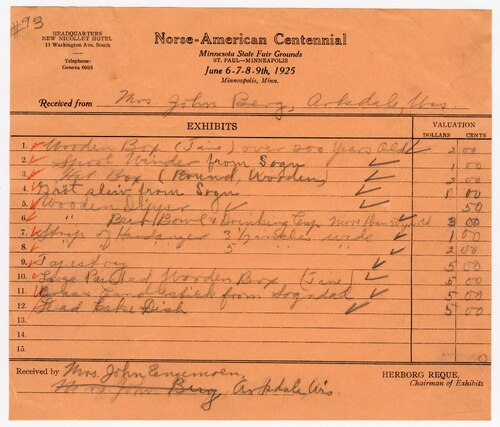 #93
HEADQUARTERS
NEW NICOLLET HOTEL
11 Washington Ave. South
Telephone:
Geneva 6935
Norse-American Centennial
Minnesota State Fair Grounds
ST. PAUL—MINNEAPOLIS
June 6-7-8-9th, 1925
Minneapolis, Minn.
Received from Mrs John Berg, Arkdale, Wis.
EXHIBITS VALUATION
DOLLARS CENTS
1. Wooden Box (Tine) over 200 Years Old 2 00
2. Spool Winder from Sogn 1 00
3. Box (Round, Wooden) 2 00
4. from Sogn
5. Wooden Dipper 50
6. " Beer Bowl & Drinking Cup 3 00
7. Strip of Hardanger 3 1/2 inches wide 1 00
8. " " 5 " 2 00
9. Tapestry 5 00
10. Large Painted Wooden Box (Tine) 5 00
11. Candlestick from Sogndal 5 00
12. Lead Cake Dish 5 00
13.
14.
15.
Received by Mrs. John
Mrs John Berg, Arkdale, Wis.
HERBORG REQUE,
Chairman of Exhibits